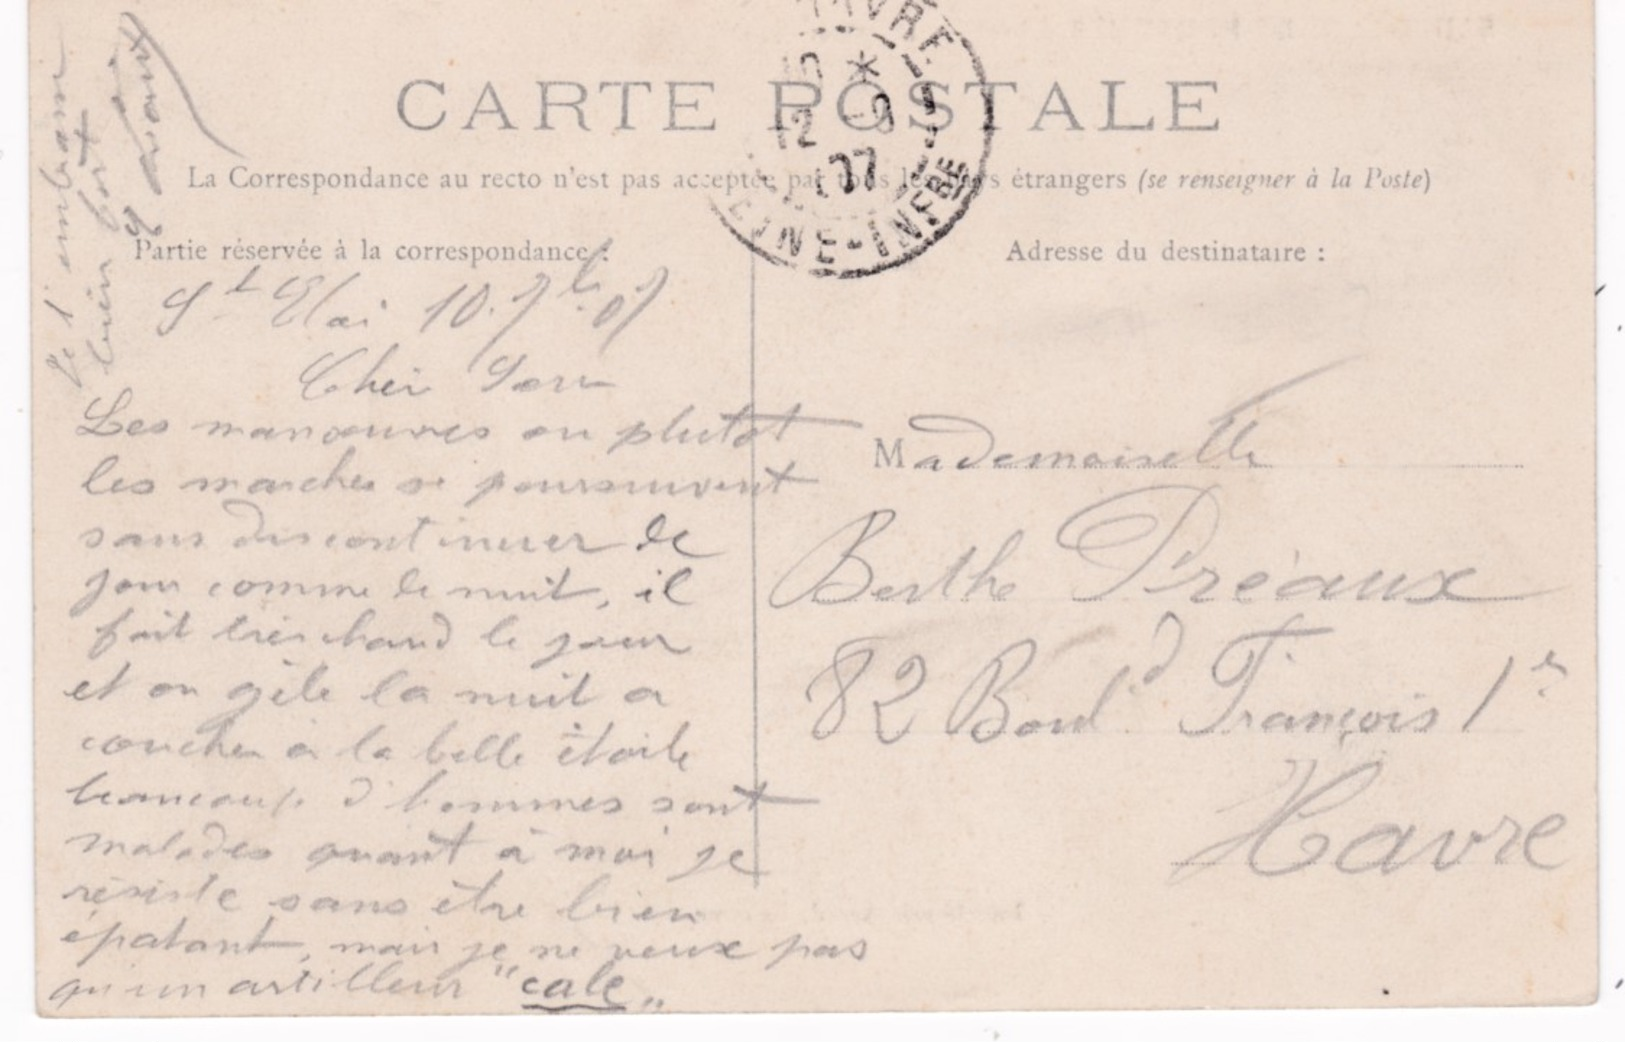 CARTE POSTALE
La Correspondance au recto n'est pas acceptée par tous les pays étrangers (se renseigner à la Poste)
Partie réservée à la correspondance :
Adresse du destinataire :
HAVRE
12 -9
07
SEINE-INFRE
St Eloi 10. 7b. 07
Cher Sœur
Les manœuvres ou plutot
les marches se poursuivent
sans discontinuer de
jour comme de nuit, il
fait très chaud le jour
et on gèle la nuit a
coucher à la belle étoile
beaucoup d'hommes sont
malades quant à moi je
résiste sans être bien
épatant, mais je ne veux pas
qu'un artilleur "cale"
Je t'embrasse
bien fort
Mademoiselle
Berthe Préaux
82 Boul.d François 1er
Havre